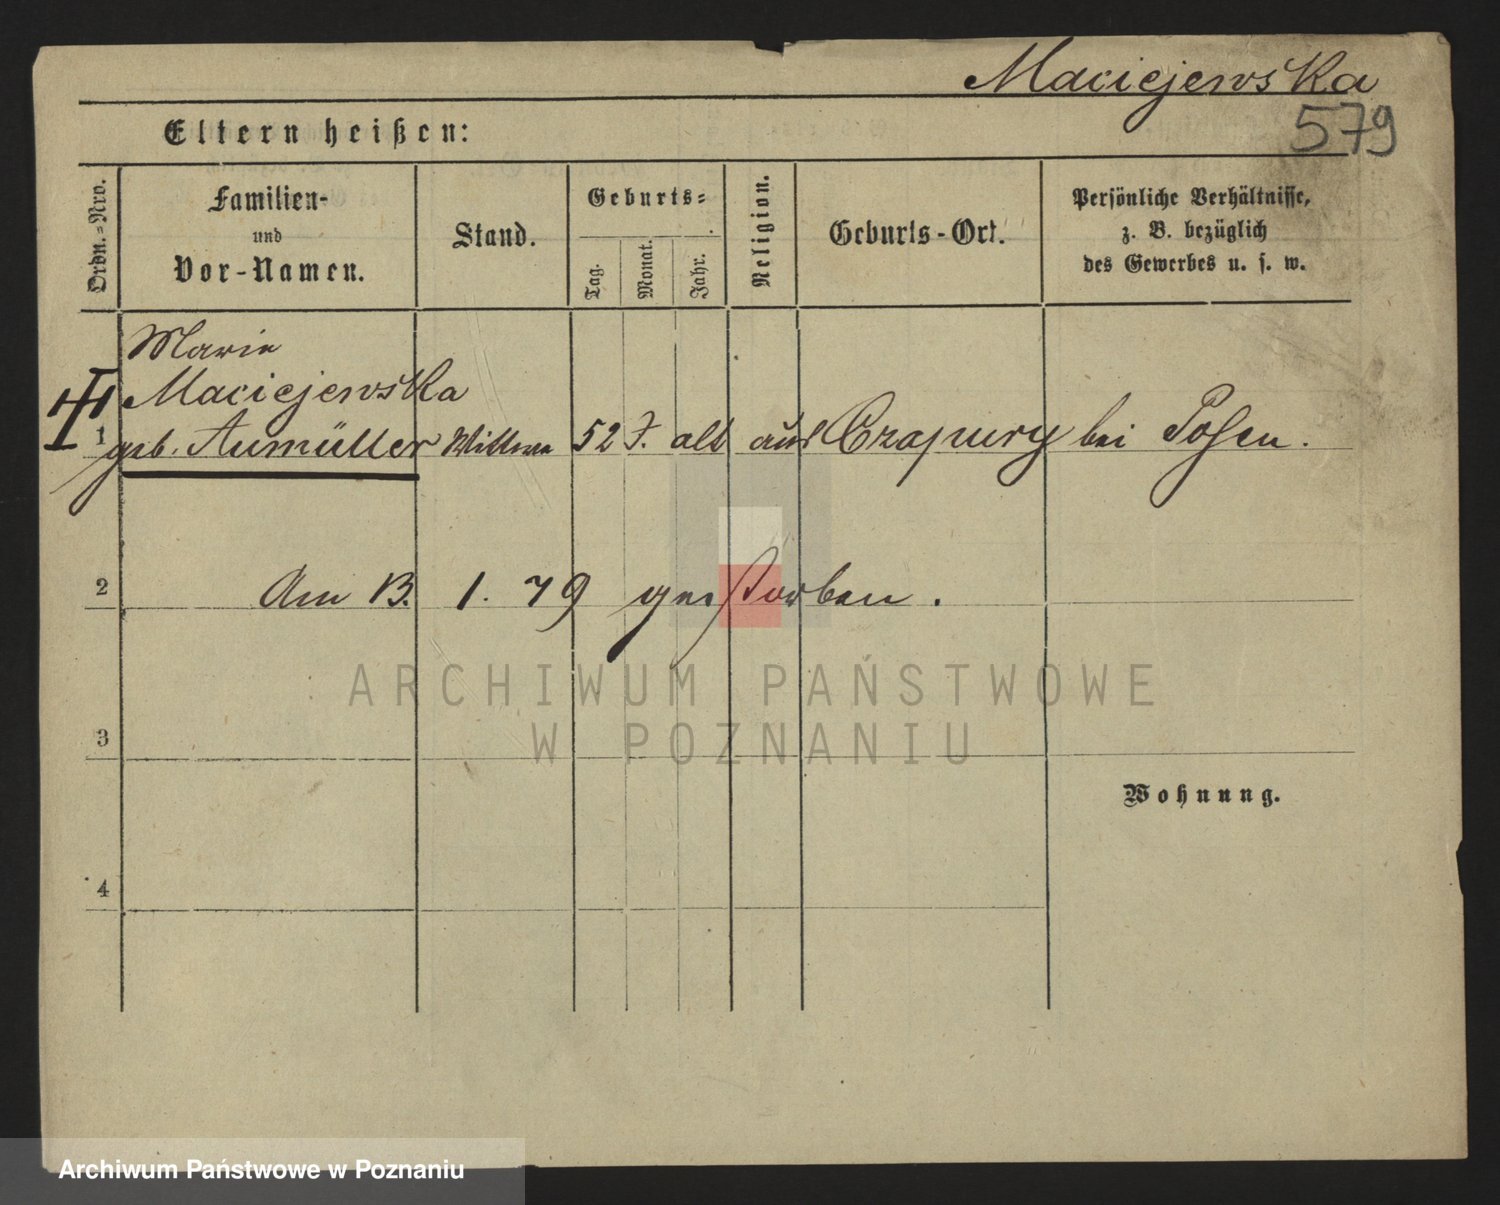 Maciejewska
579
Eltern heißen:
Ordn.-Nro.
Familien-
und
Vor-Namen.
Stand.
Geburts-
Tag.
Monat.
Jahr.
Religion.
Geburts-Ort.
Persönliche Verhältnisse,
z. B. bezüglich
des Gewerbes u. s. w.
Marie
Maciejewska
1 geb. Aumüller Wittwe 52 J. alt aus Czapury bei Posen.
2 Am 13. 1. 79 gestorben.
ARCHIWUM PAŃSTWOWE
W POZNANIU
3
Wohnung.
4
Archiwum Państwowe w Poznaniu